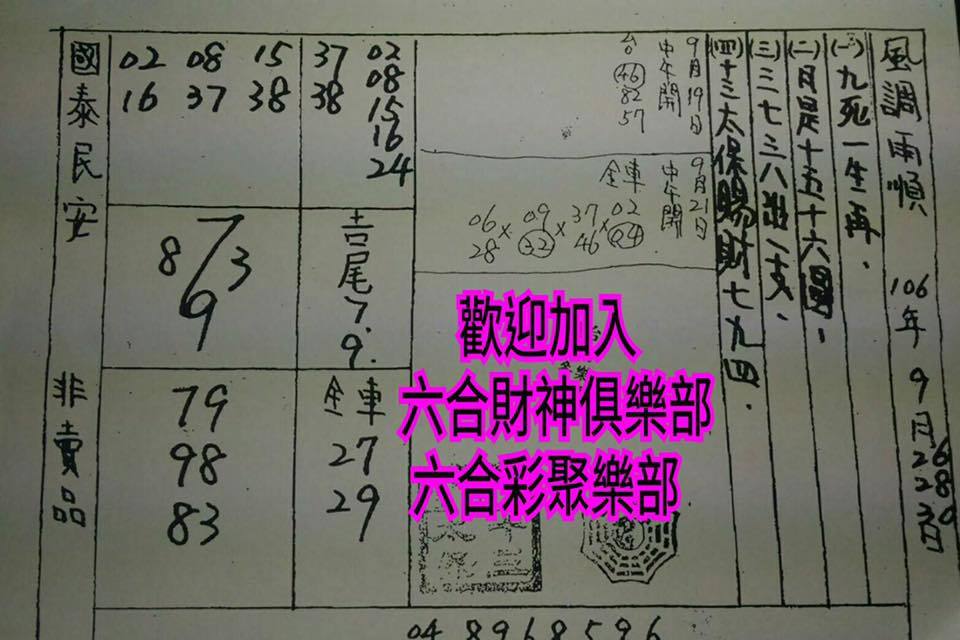 風調雨順 106年 9月26 28 30日
(一)九死一生再.
(二)月是十五十六圓.
(三)三七三八逃一支.
(四)十三太保賜財七九四.
9月19日
中午開
台
46
82
57
9月21日
中午開
金車
06 × 09 × 37 × 02
28 32 46 24
02 08 15
16 37 38
37 02
38 08
15
16
24
7
8 3
9
吉尾7.9.
79
98
83
金車
27
29
國泰民安
非賣品
歡迎加入
六合財神俱樂部
六合彩聚樂部
04 8968596